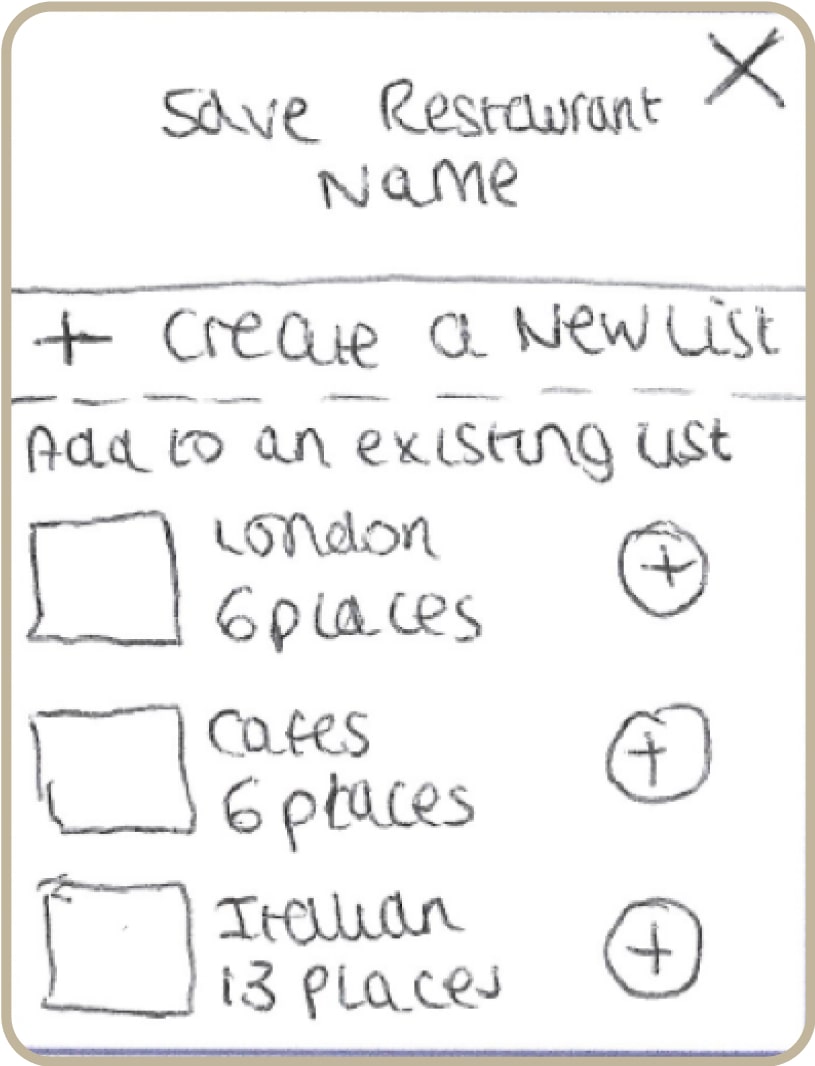 Save Restaurant
Name
+ Create a New List
Add to an existing list
London
6 places
Cafes
6 places
Italian
13 places